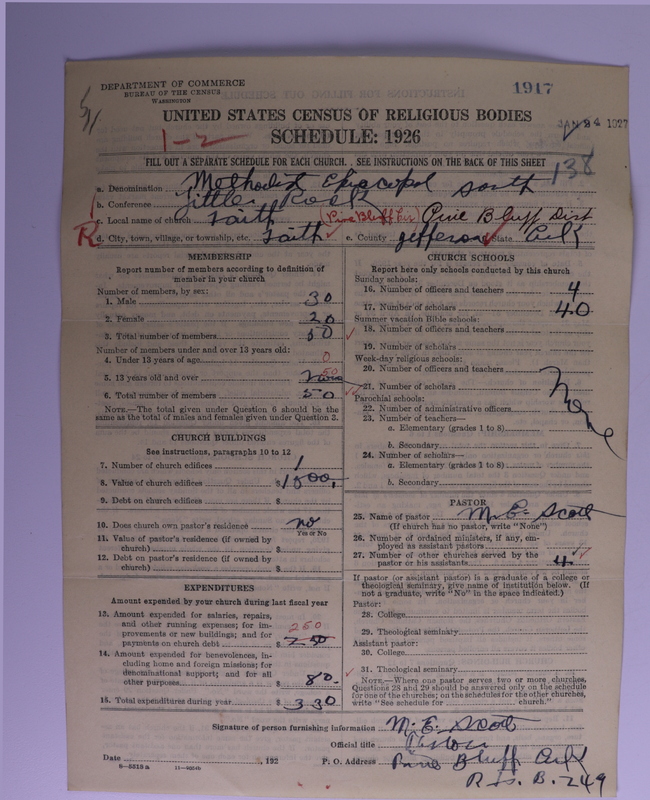 DEPARTMENT OF COMMERCE
BUREAU OF THE CENSUS
WASHINGTON
1917
UNITED STATES CENSUS OF RELIGIOUS BODIES
JAN 24 1927
1-2
SCHEDULE: 1926
FILL OUT A SEPARATE SCHEDULE FOR EACH CHURCH. SEE INSTRUCTIONS ON THE BACK OF THIS SHEET
138
a. Denomination Methodist Episcopal South
b. Conference Little Rock
c. Local name of church Faith (Pine Bluff Cir) Pine Bluff Dist
R d. City, town, village, or township, etc. Faith e. County Jefferson State Ark
MEMBERSHIP
Report number of members according to definition of
member in your church
Number of members, by sex:
1. Male 30
2. Female 20
3. Total number of members 50
Number of members under and over 13 years old:
4. Under 13 years of age 0
5. 13 years old and over 50
6. Total number of members 50
NOTE.—The total given under Question 6 should be the
same as the total of males and females given under Question 3.
CHURCH BUILDINGS
See instructions, paragraphs 10 to 12
7. Number of church edifices 1
8. Value of church edifices $1500.
9. Debt on church edifices $
10. Does church own pastor's residence no
Yes or No
11. Value of pastor's residence (if owned by
church) $
12. Debt on pastor's residence (if owned by
church) $
EXPENDITURES
Amount expended by your church during last fiscal year
13. Amount expended for salaries, repairs,
and other running expenses; for im-
provements or new buildings; and for
payments on church debt $ 250
14. Amount expended for benevolences, in-
cluding home and foreign missions; for
denominational support; and for all
other purposes $ 80.
15. Total expenditures during year $ 330
CHURCH SCHOOLS
Report here only schools conducted by this church
Sunday schools:
16. Number of officers and teachers 4
17. Number of scholars 40
Summer vacation Bible schools:
18. Number of officers and teachers
19. Number of scholars
Week-day religious schools:
20. Number of officers and teachers
21. Number of scholars
None
Parochial schools:
22. Number of administrative officers
23. Number of teachers—
a. Elementary (grades 1 to 8)
b. Secondary
24. Number of scholars—
a. Elementary (grades 1 to 8)
b. Secondary
PASTOR
25. Name of pastor M. E. Scott
(If church has no pastor, write "None")
26. Number of ordained ministers, if any, em-
ployed as assistant pastors
27. Number of other churches served by the
pastor or his assistants 4
If pastor (or assistant pastor) is a graduate of a college or
theological seminary, give name of institution below. (If
not a graduate, write "No" in the space indicated.)
Pastor:
28. College
29. Theological seminary
Assistant pastor:
30. College
31. Theological seminary
NOTE.—Where one pastor serves two or more churches,
Questions 28 and 29 should be answered only on the schedule
for one of the churches; on the schedules for the other churches,
write "See schedule for church."
Signature of person furnishing information M. E. Scott
Official title Pastor
Date , 192 P. O. Address Pine Bluff Ark
8-5515a 11-9054b
R. 5. B. 249